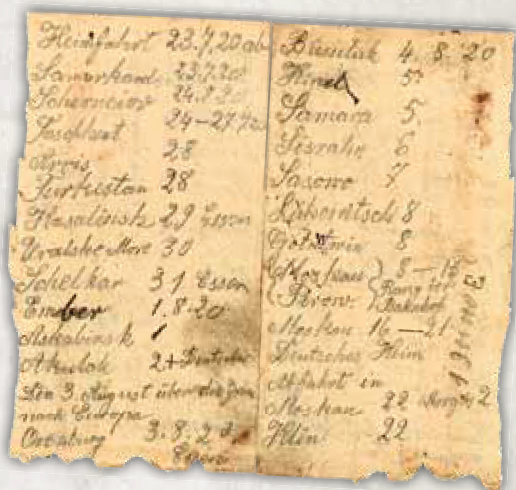 Heimfahrt 23.7.20 ab
Samarkand 23.7.20
24.7.20
Taschkent 24–27.7.20
Arris 28
Turkestan 28
Kasalinsk 29 Essen
Uralske More 30
Schelkar 31 Essen
Ember 1.8.20
1
Akulak 2+
Den 3. August über die
nach Europa
Orenburg 3.8.20
Essen
Busuluk 4.8.20
Kinel 5.
Samara 5.
Sisralin 6
Sasowo 7
8
Golutwin 8
8–16
Rang ier
Bahnhof
Moskau 16–21
Deutsches Heim
Abfahrt in
Moskau 22 Morgens 2
Klin 22